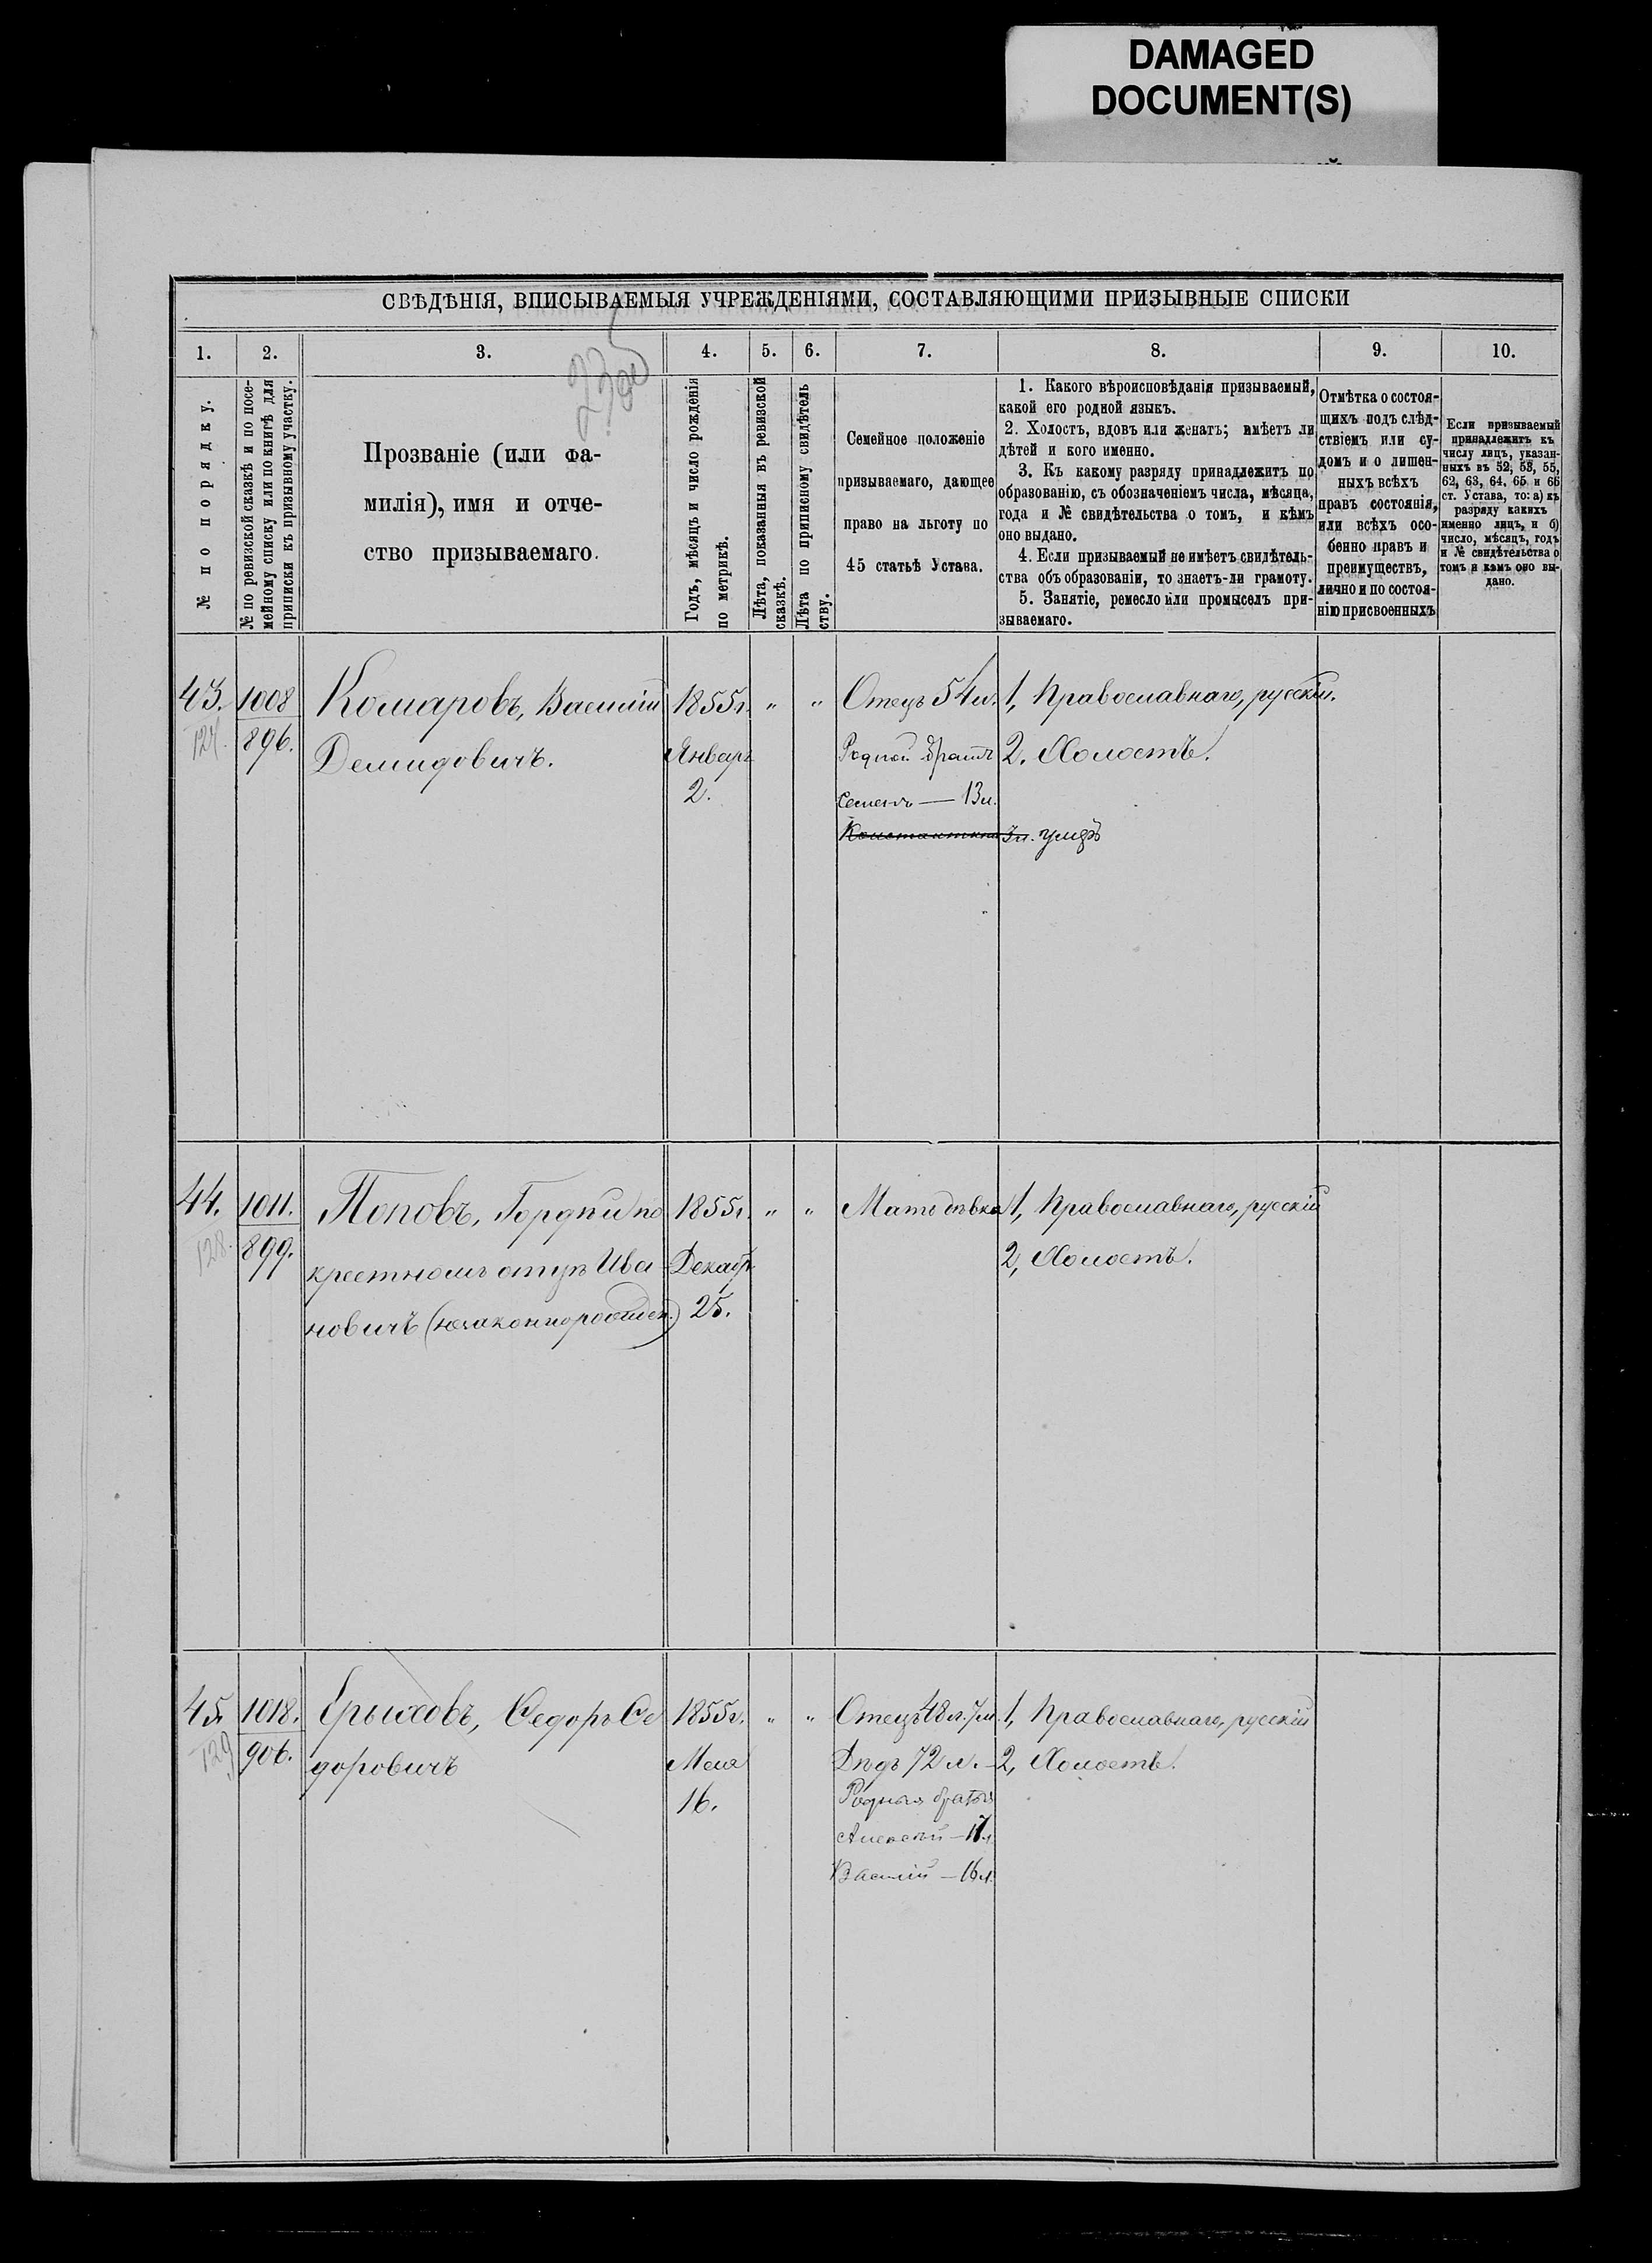 DAMAGED
DOCUMENT(S)
СВѢДѢНІЯ, ВПИСЫВАЕМЫЯ УЧРЕЖДЕНІЯМИ, СОСТАВЛЯЮЩИМИ ПРИЗЫВНЫЕ СПИСКИ
1. 2. 3. 4. 5. 6. 7. 8. 9. 10.
№ по порядку.
№ по ревизской сказкѣ и по посе-
мейному списку или по книгѣ для
приписки къ призывному участку.
Прозваніе (или фа-
милія), имя и отче-
ство призываемаго.
Годъ, мѣсяцъ и число рожденія
по метрикѣ.
Лѣта, показанныя въ ревизской
сказкѣ.
Лѣта по приписному свидѣтель
ству.
Семейное положеніе
призываемаго, дающее
право на льготу по
45 статьѣ Устава.
1. Какого вѣроисповѣданія призываемый,
какой его родной языкъ.
2. Холостъ, вдовъ или женатъ; имѣетъ ли
дѣтей и кого именно.
3. Къ какому разряду принадлежитъ по
образованію, съ обозначеніемъ числа, мѣсяца,
года и № свидѣтельства о томъ, и кѣмъ
оно выдано.
4. Если призываемый не имѣетъ свидѣтель-
ства объ образованіи, то знаетъ-ли грамоту.
5. Занятіе, ремесло или промыселъ при-
зываемаго.
Отмѣтка о состоя-
щихъ подъ слѣд-
ствіемъ или су-
домъ и о лишен-
ныхъ всѣхъ
правъ состоянія,
или всѣхъ осо-
бенно правъ и
преимуществъ,
лично и по состоя-
нію присвоенныхъ
Если призываемый
принадлежитъ къ
числу лицъ, указан-
ныхъ въ 52, 53, 55,
62, 63, 64, 65 и 66
ст. Устава, то: а) къ
разряду какихъ
именно лицъ, и б)
число, мѣсяцъ, годъ
и № свидѣтельства о
томъ и кѣмъ оно вы-
дано.
43. 1008 Комаровъ, Василій 1855г. " " Отецъ 54 л. 1, Православнаго, русскій.
127. 896. Демидовичъ. Январь Родной братъ 2. Холостъ.
2. Семенъ — 13 л.
Константинъ 3 л. умеръ
44. 1011. Поповъ, Гордѣй по 1855г. " " Мать дѣвка 1, Православнаго, русскій
128. 899. крестному отцу Ива Декабр. 2, Холостъ.
новичъ (незаконнорожден.) 25.
45. 1018. Ерыховъ, Ѳедоръ Ѳе 1855г. " " Отецъ 48 л. 7 м. 1, Православнаго, русскій
129 906. доровичъ Мая Дѣдъ 72 л. 2, Холостъ.
16. Родныя братья
Алексѣй — 17 л.
Василій — 16 л.